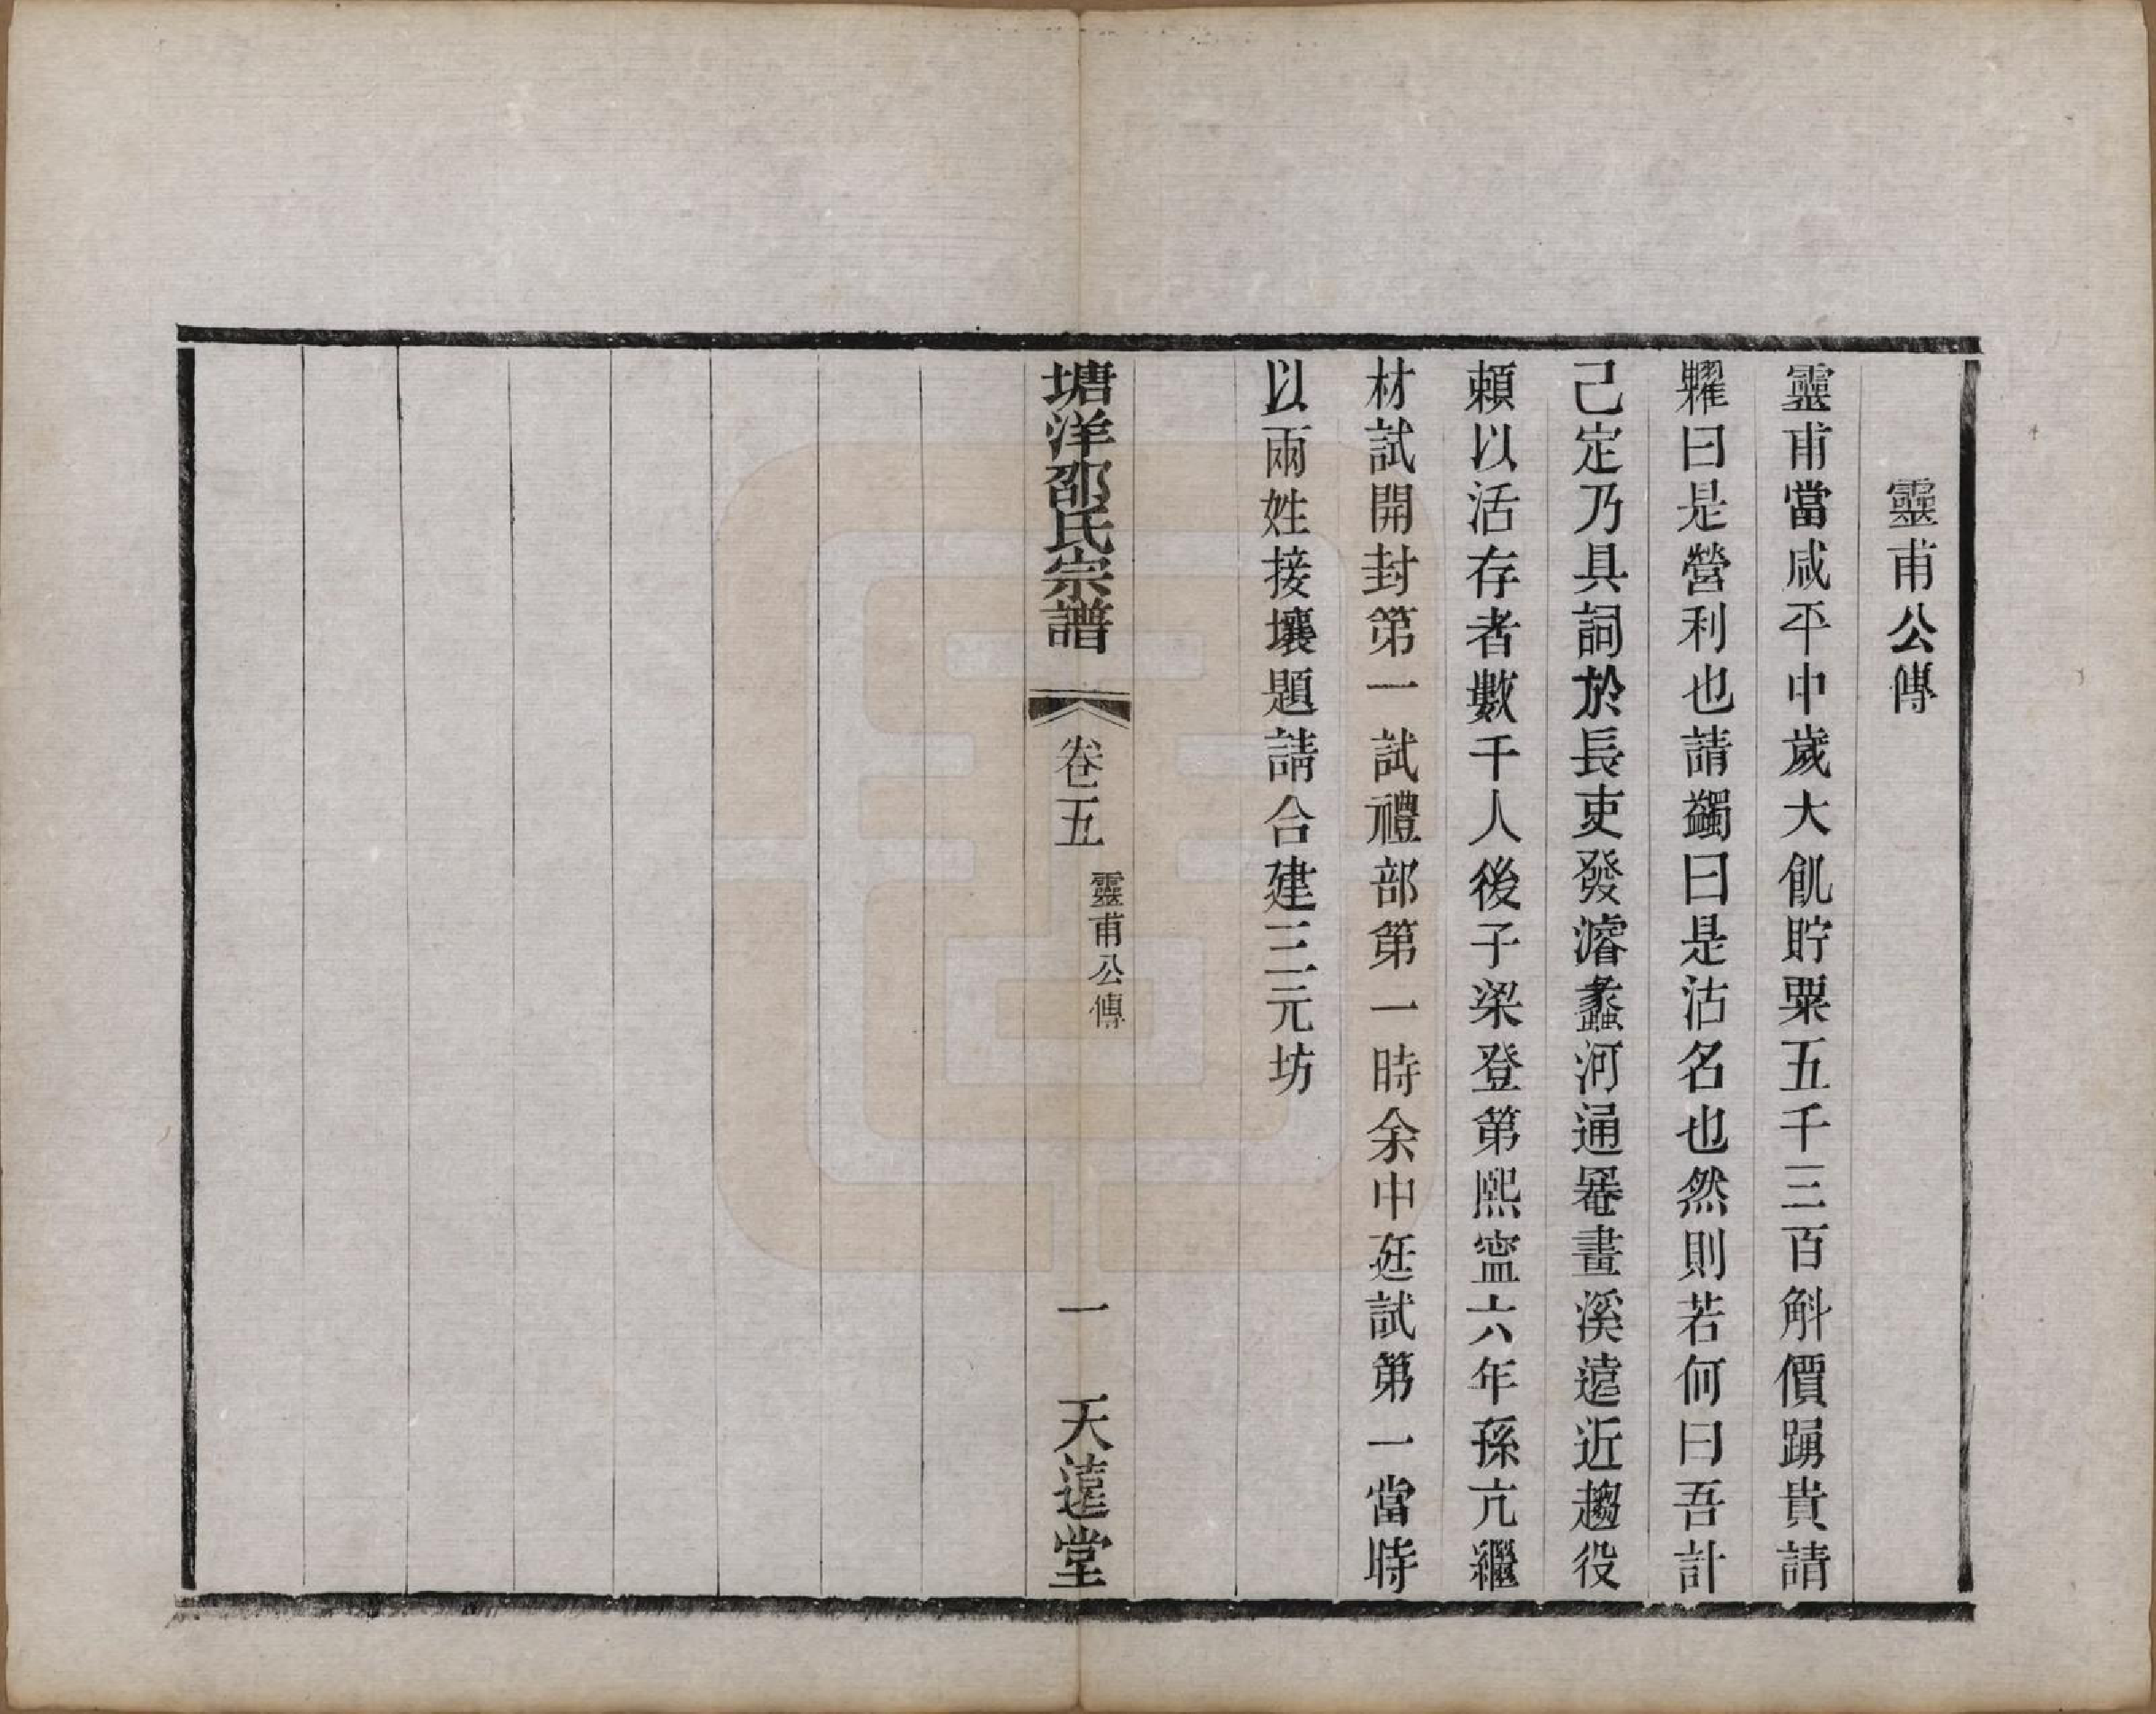 靈甫公傳
靈甫當咸平中歲大飢貯粟五千三百斛價踴貴請
糶曰是營利也請蠲曰是沽名也然則若何曰吾計
己定乃具詞於長吏發濬蠡河通罨畫溪遠近趨役
賴以活存者數千人後子梁登第熙寍六年孫亢繼
材試開封第一試禮部第一時余中廷試第一當時
以兩姓接壤題請合建三元坊
塘洋邵氏宗譜 卷五 靈甫公傳 一 天遠堂